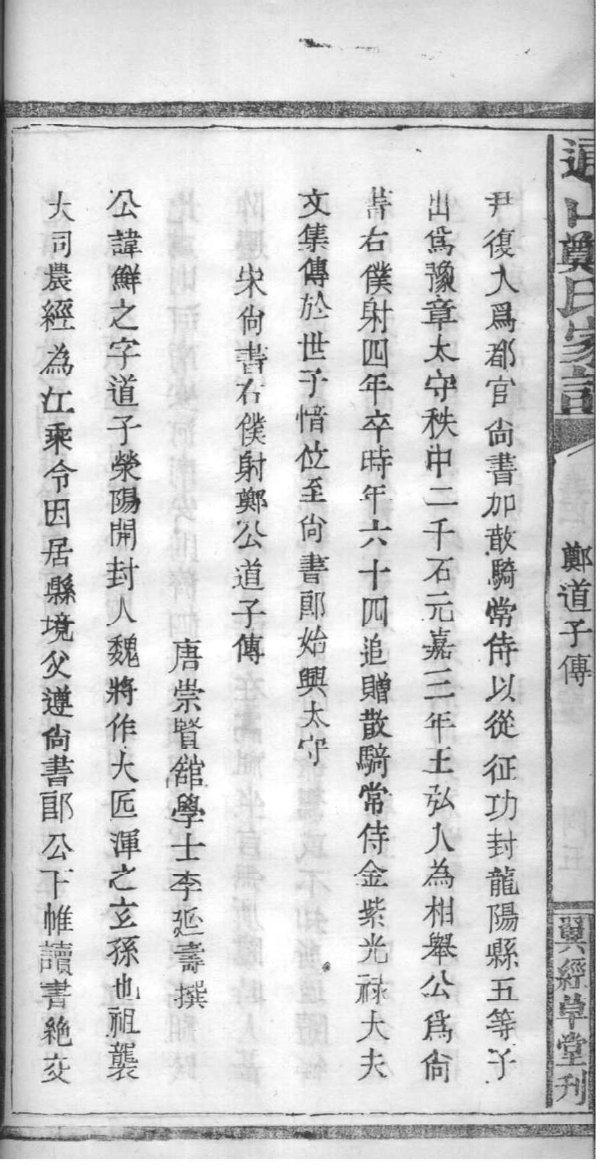 鄭氏家譜
鄭道子傳
翼經草堂刊
尹復入爲都官尙書加散騎常侍以從征功封龍陽縣五等子
出爲豫章太守秩中二千石元嘉三年王弘入為相舉公爲尙
書右僕射四年卒時年六十四追贈散騎常侍金紫光祿大夫
文集傳於世子愔位至尙書郎始興太守
宋尙書右僕射鄭公道子傳
唐崇賢舘學士李延壽撰
公諱鮮之字道子滎陽開封人魏將作大匠渾之玄孫也祖襲
大司農經為江乘令因居縣境父遵尙書郎公下帷讀書絶交